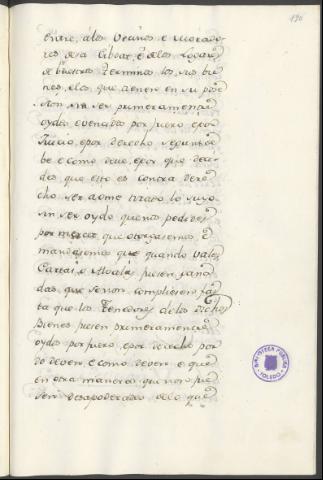 190
entre, á los Vecinos e morado-
res desa Cibdat, é de los Logares
de vuestros terminos los sus bie-
nes, e los que tienen en su pose-
sion sin ser primeramente
oydos e vencidos por fuero, e por
Juicio, e por derecho segunt de-
be e como deve, e por que deci-
des que esto es contra dere-
cho ser a ome tirado lo suyo
sin ser oydo que nos pedides
por merced, que otorgasemos, é
mandasemos que quando tales
Cartas, é Alvalas fuesen gana-
das, que se non compliesen fas-
ta que los Tenedores de los dichos
bienes fuesen primeramente
oydos por fuero, e por derecho por
do deven, e como deven e que
en otra manera que non fue-
sen desapoderados de lo que
BIBLIOTECA PUBLICA
TOLEDO